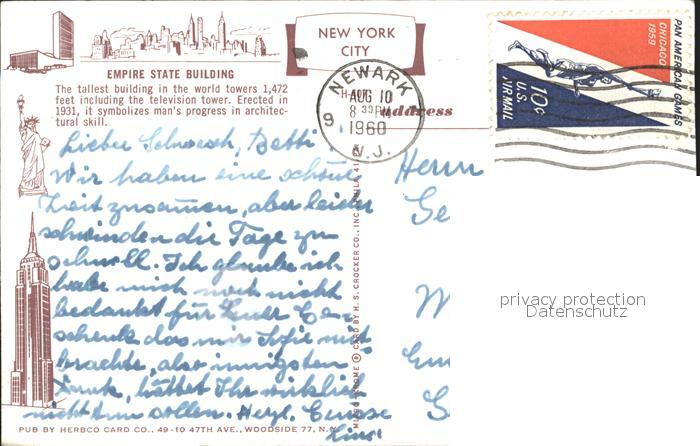 NEW YORK
CITY
EMPIRE STATE BUILDING
The tallest building in the world towers 1,472
feet including the television tower. Erected in
1931, it symbolizes man's progress in architec-
tural skill.
NEWARK
AUG 10
8 30 PM
1960
N.J.
9
Address
PAN AMERICAN GAMES
CHICAGO 1959
10¢
U.S.
AIR MAIL
Lieber Betti
Wir haben eine schöne
Zeit zusammen, aber leider
schwinden die Tage zu
schnell. Ich glaube ich
habe mich noch nicht
bedankt für Euer Ge-
schenk das mir mit
brachte, also innigsten
Dank, hättet Ihr wirklich
nicht tun sollen. Herzl. Grüsse
Herrn
Ge
W
G
privacy protection
Datenschutz
CARD BY H. S. CROCKER CO., INC.
PUB BY HERBCO CARD CO., 49-10 47TH AVE., WOODSIDE 77, N.Y.